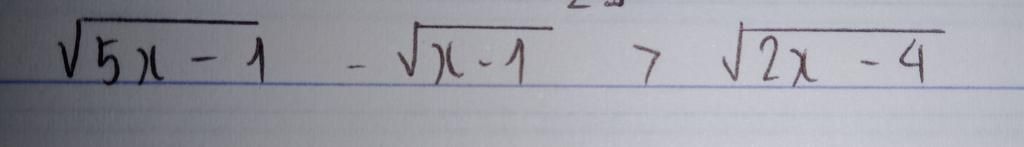 √(5x - 1) - √(x - 1) > √(2x - 4)